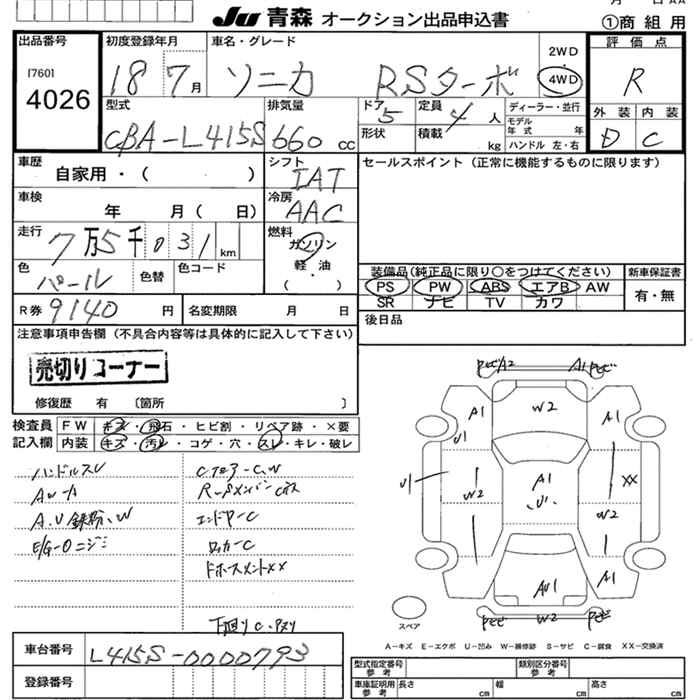 JU 青森 オークション出品申込書
①商組用
出品番号
17601
4026
初度登録年月
18 7月
車名・グレード
ソニカ RSターボ
2WD
4WD
評価点
R
外装 内装
D C
型式
CBA-L415S
排気量
660 cc
ドア
5
定員
4人
形状
積載
kg
ディーラー・並行
モデル年式 年
ハンドル 左・右
車歴
自家用・( )
シフト
IAT
セールスポイント(正常に機能するものに限ります)
車検
年 月( 日)
冷房
AAC
走行
7万5千031km
燃料
ガソリン
軽・油
・( )
色
パール
色替
色コード
装備品(純正品に限り○をつけてください)
PS PW ABS エアB AW
SR ナビ TV カワ
新車保証書
有・無
R券 9140円
名変期限 月 日
後日品
注意事項申告欄(不具合内容等は具体的に記入して下さい)
売切りコーナー
修復歴 有 〔箇所 〕
検査員記入欄
FW キズ・飛石・ヒビ割・リペア跡・×要
内装 キズ・汚レ・コゲ・穴・スレ・キレ・破レ
ハンドルスレ
A.U鉄粉、W
E/G-Oニジミ
エンドヤーC
ロッカーC
下廻りC・Pスリ
A2
A1
W2
A1
A1
U1
A1
U1
U1
W2
XX
W2
A1
AU1
W2
スペア
A-キズ E-エクボ U-凹み W-補修跡 S-サビ C-腐食 XX-交換済
車台番号
L415S-0000793
登録番号
型式指定番号
参考
類別区分番号
参考
車庫証明用
参考
長さ cm
幅 cm
高さ cm